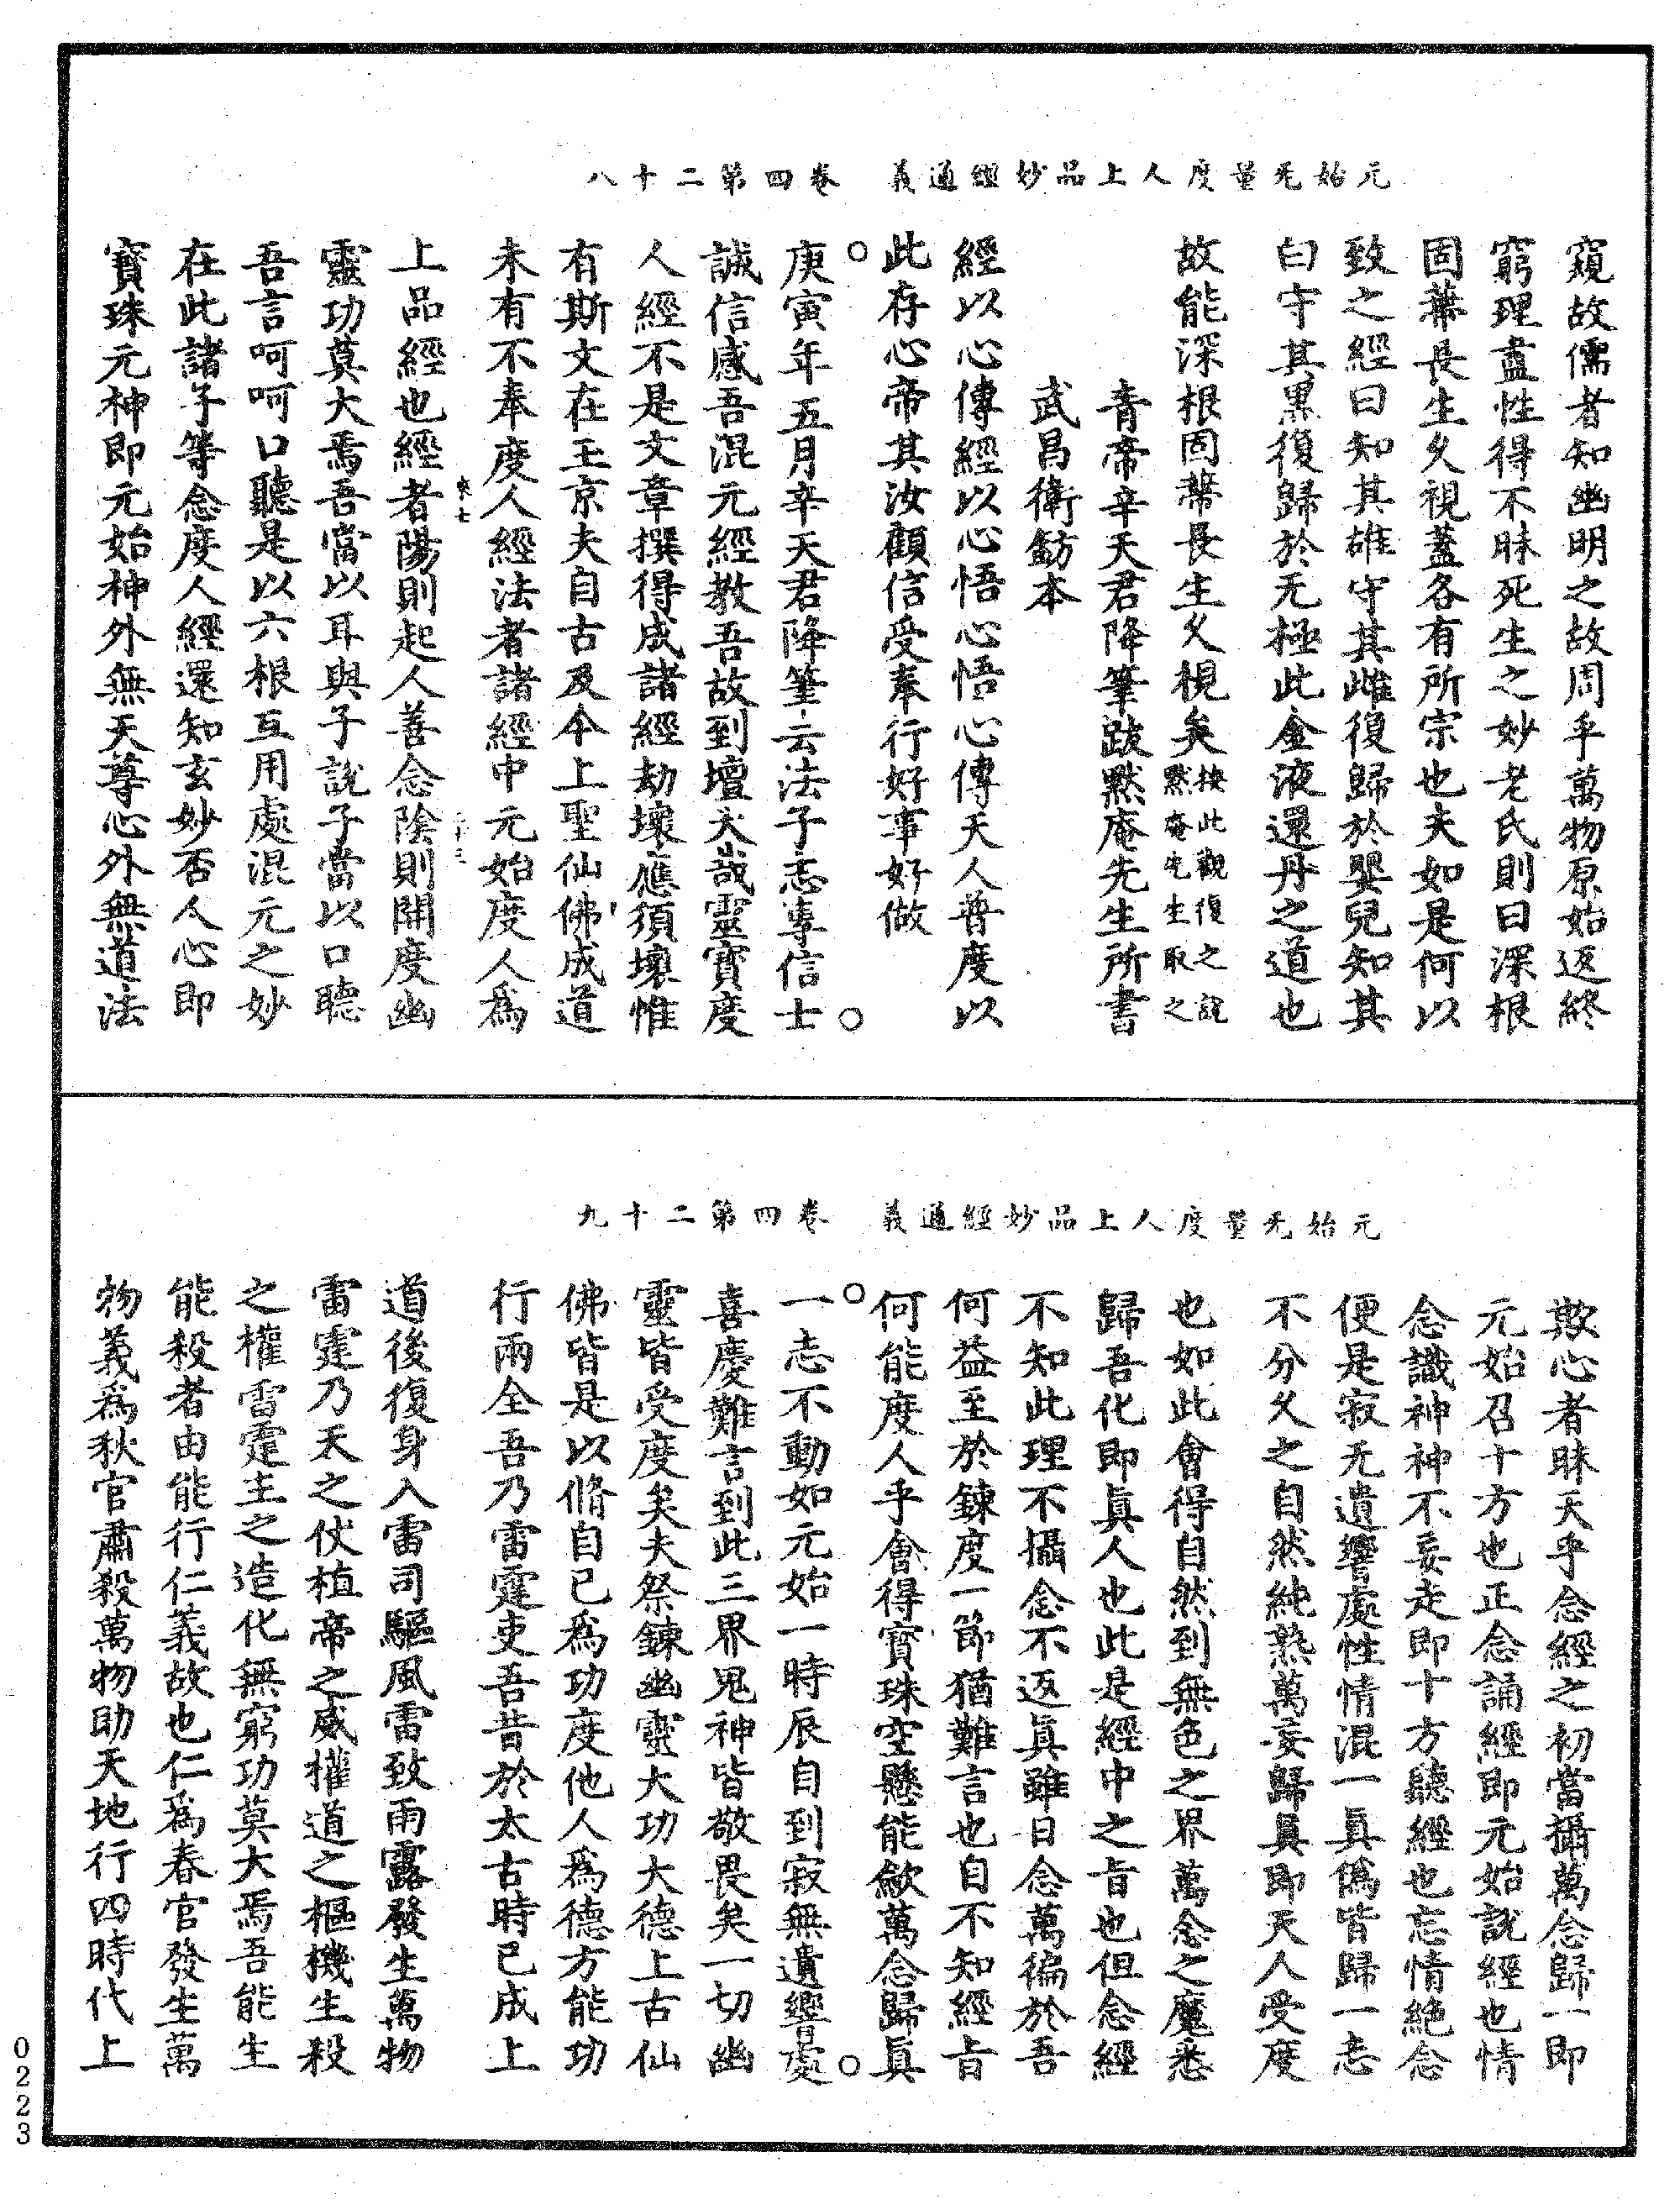 元始无量度人上品妙經通義　卷四第二十八
窺故儒者知幽明之故周乎萬物原始返終
窮理盡性得不昧死生之妙老氏則曰深根
固蔕長生久視蓋各有所宗也夫如是何以
致之經曰知其雄守其雌復歸於嬰兒知其
白守其黑復歸於无極此金液還丹之道也
故能深根固蔕長生久視矣按此觀復之說默庵先生取之
青帝辛天君降筆跋默庵先生所書
武昌衛鈁本
經以心傳經以心悟心悟心傳天人普度以
此存心帝其汝顧信受奉行好事好做
○庚寅年五月辛天君降筆云法子志專信士○
誠信感吾混元經教吾故到壇大哉靈寶度
人經不是文章撰得成諸經劫壞應須壞惟
有斯文在玉京夫自古及今上聖仙佛成道
未有不奉度人經法者諸經中元始度人為
上品經也經者陽則起人善念陰則開度幽
靈功莫大焉吾當以耳與子說子當以口聽
吾言呵呵口聽是以六根互用處混元之妙
在此諸子等念度人經還知玄妙否人心即
寶珠元神即元始神外無天尊心外無道法
元始无量度人上品妙經通義　卷四第二十九
欺心者昧天乎念經之初當攝萬念歸一即
元始召十方也正念誦經即元始說經也情
念識神神不妄走即十方聽經也忘情絶念
便是寂无遺響處性情混一真僞皆歸一志
不分久之自然純熟萬妄歸真即天人受度
也如此會得自然到無色之界萬念之魔悉
歸吾化即真人也此是經中之旨也但念經
不知此理不攝念不返真雖日念萬徧於吾
何益至於鍊度一節猶難言也自不知經旨
何能度人乎會得寶珠空懸能斂萬念歸真
○一志不動如元始一時辰自到寂無遺響處○
喜慶難言到此三界鬼神皆敬畏矣一切幽
靈皆受度矣夫祭鍊幽靈大功大德上古仙
佛皆是以脩自己為功度他人為德方能功
行兩全吾乃雷霆吏吾昔於太古時已成上
道後復身入雷司驅風雷致雨露發生萬物
雷霆乃天之仗植帝之威權道之樞機生殺
之權雷霆主之造化無窮功莫大焉吾能生
能殺者由能行仁義故也仁為春官發生萬
物義為秋官肅殺萬物助天地行四時代上
0223